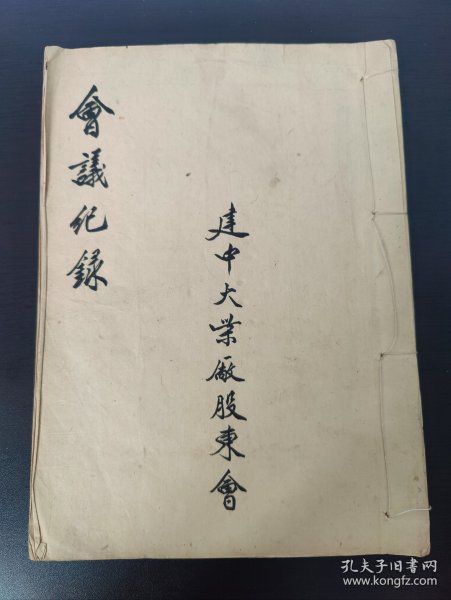 建中大業廠股東會
會議紀錄
孔夫子旧书网
www.kongfz.com